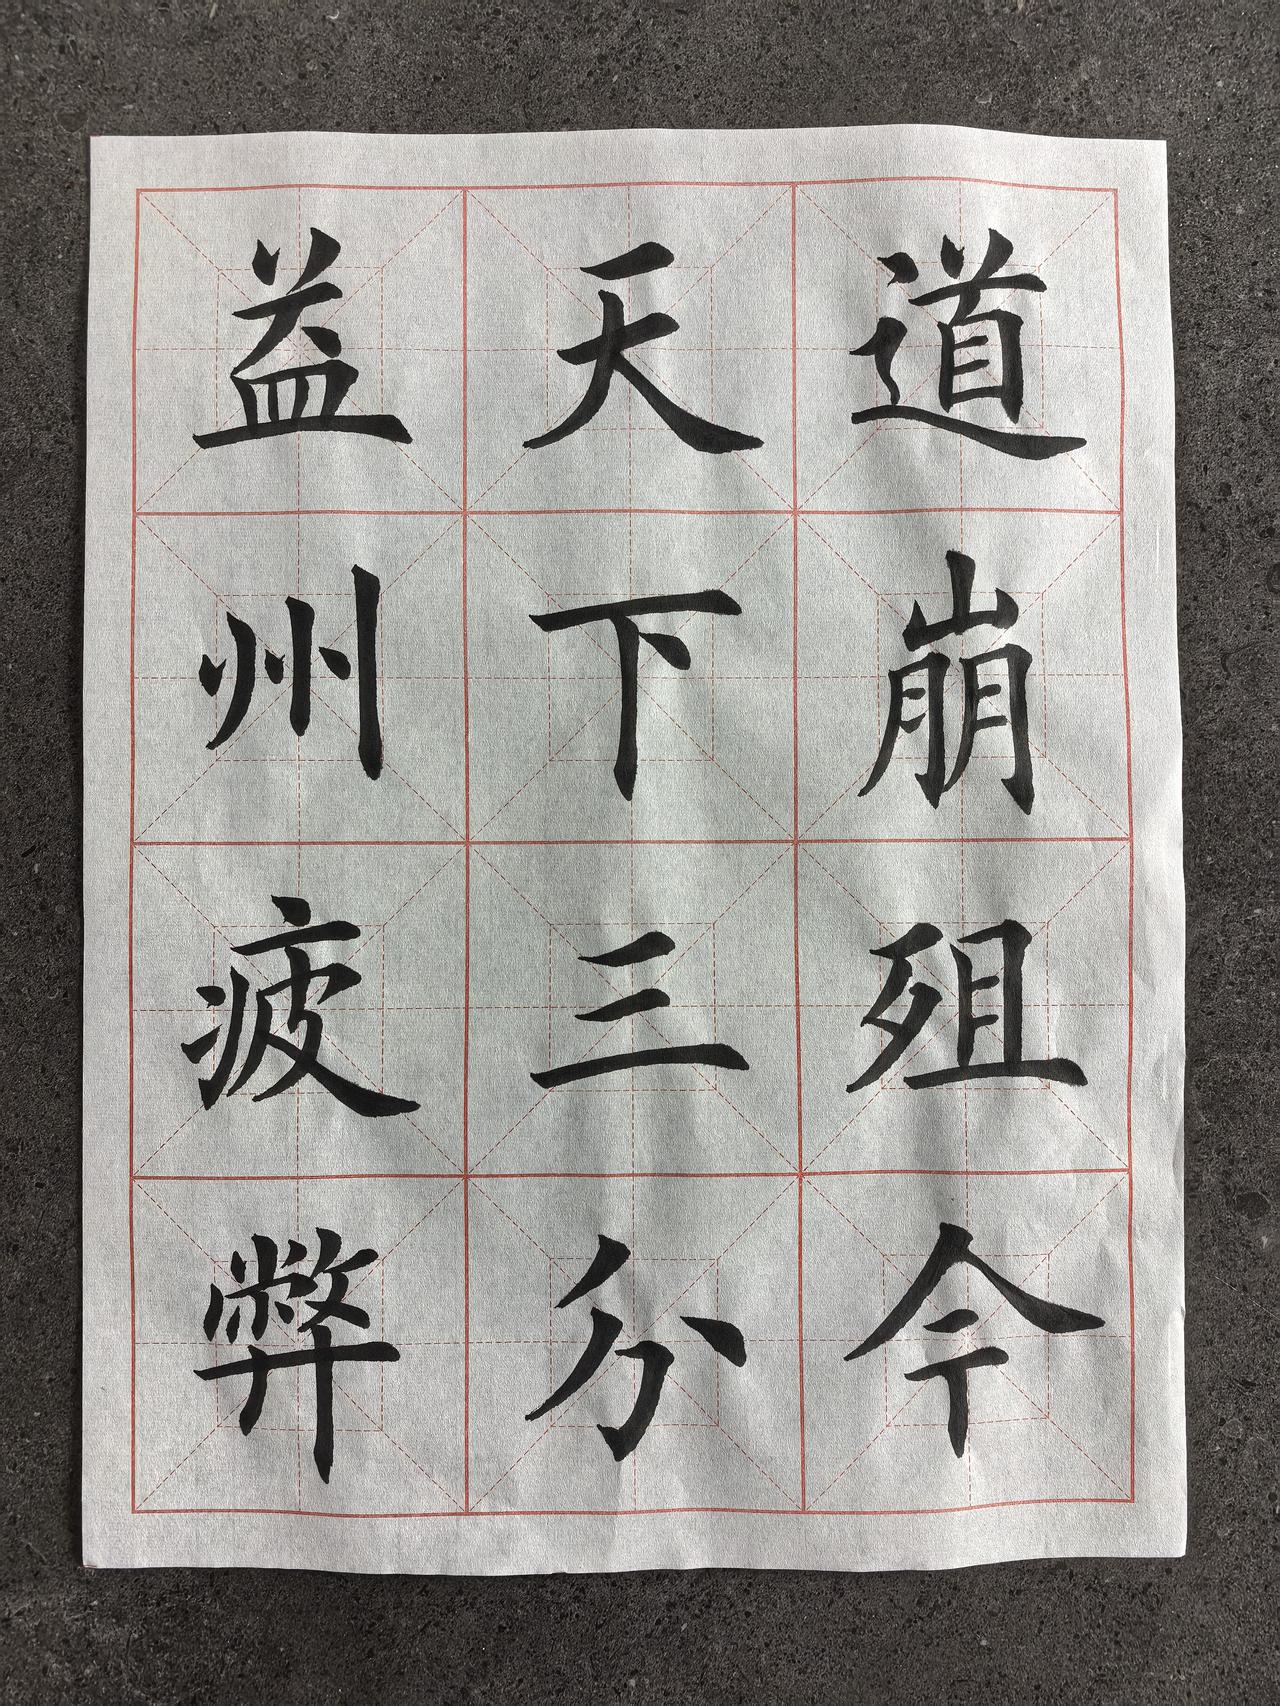 道崩殂今
天下三分
益州疲弊